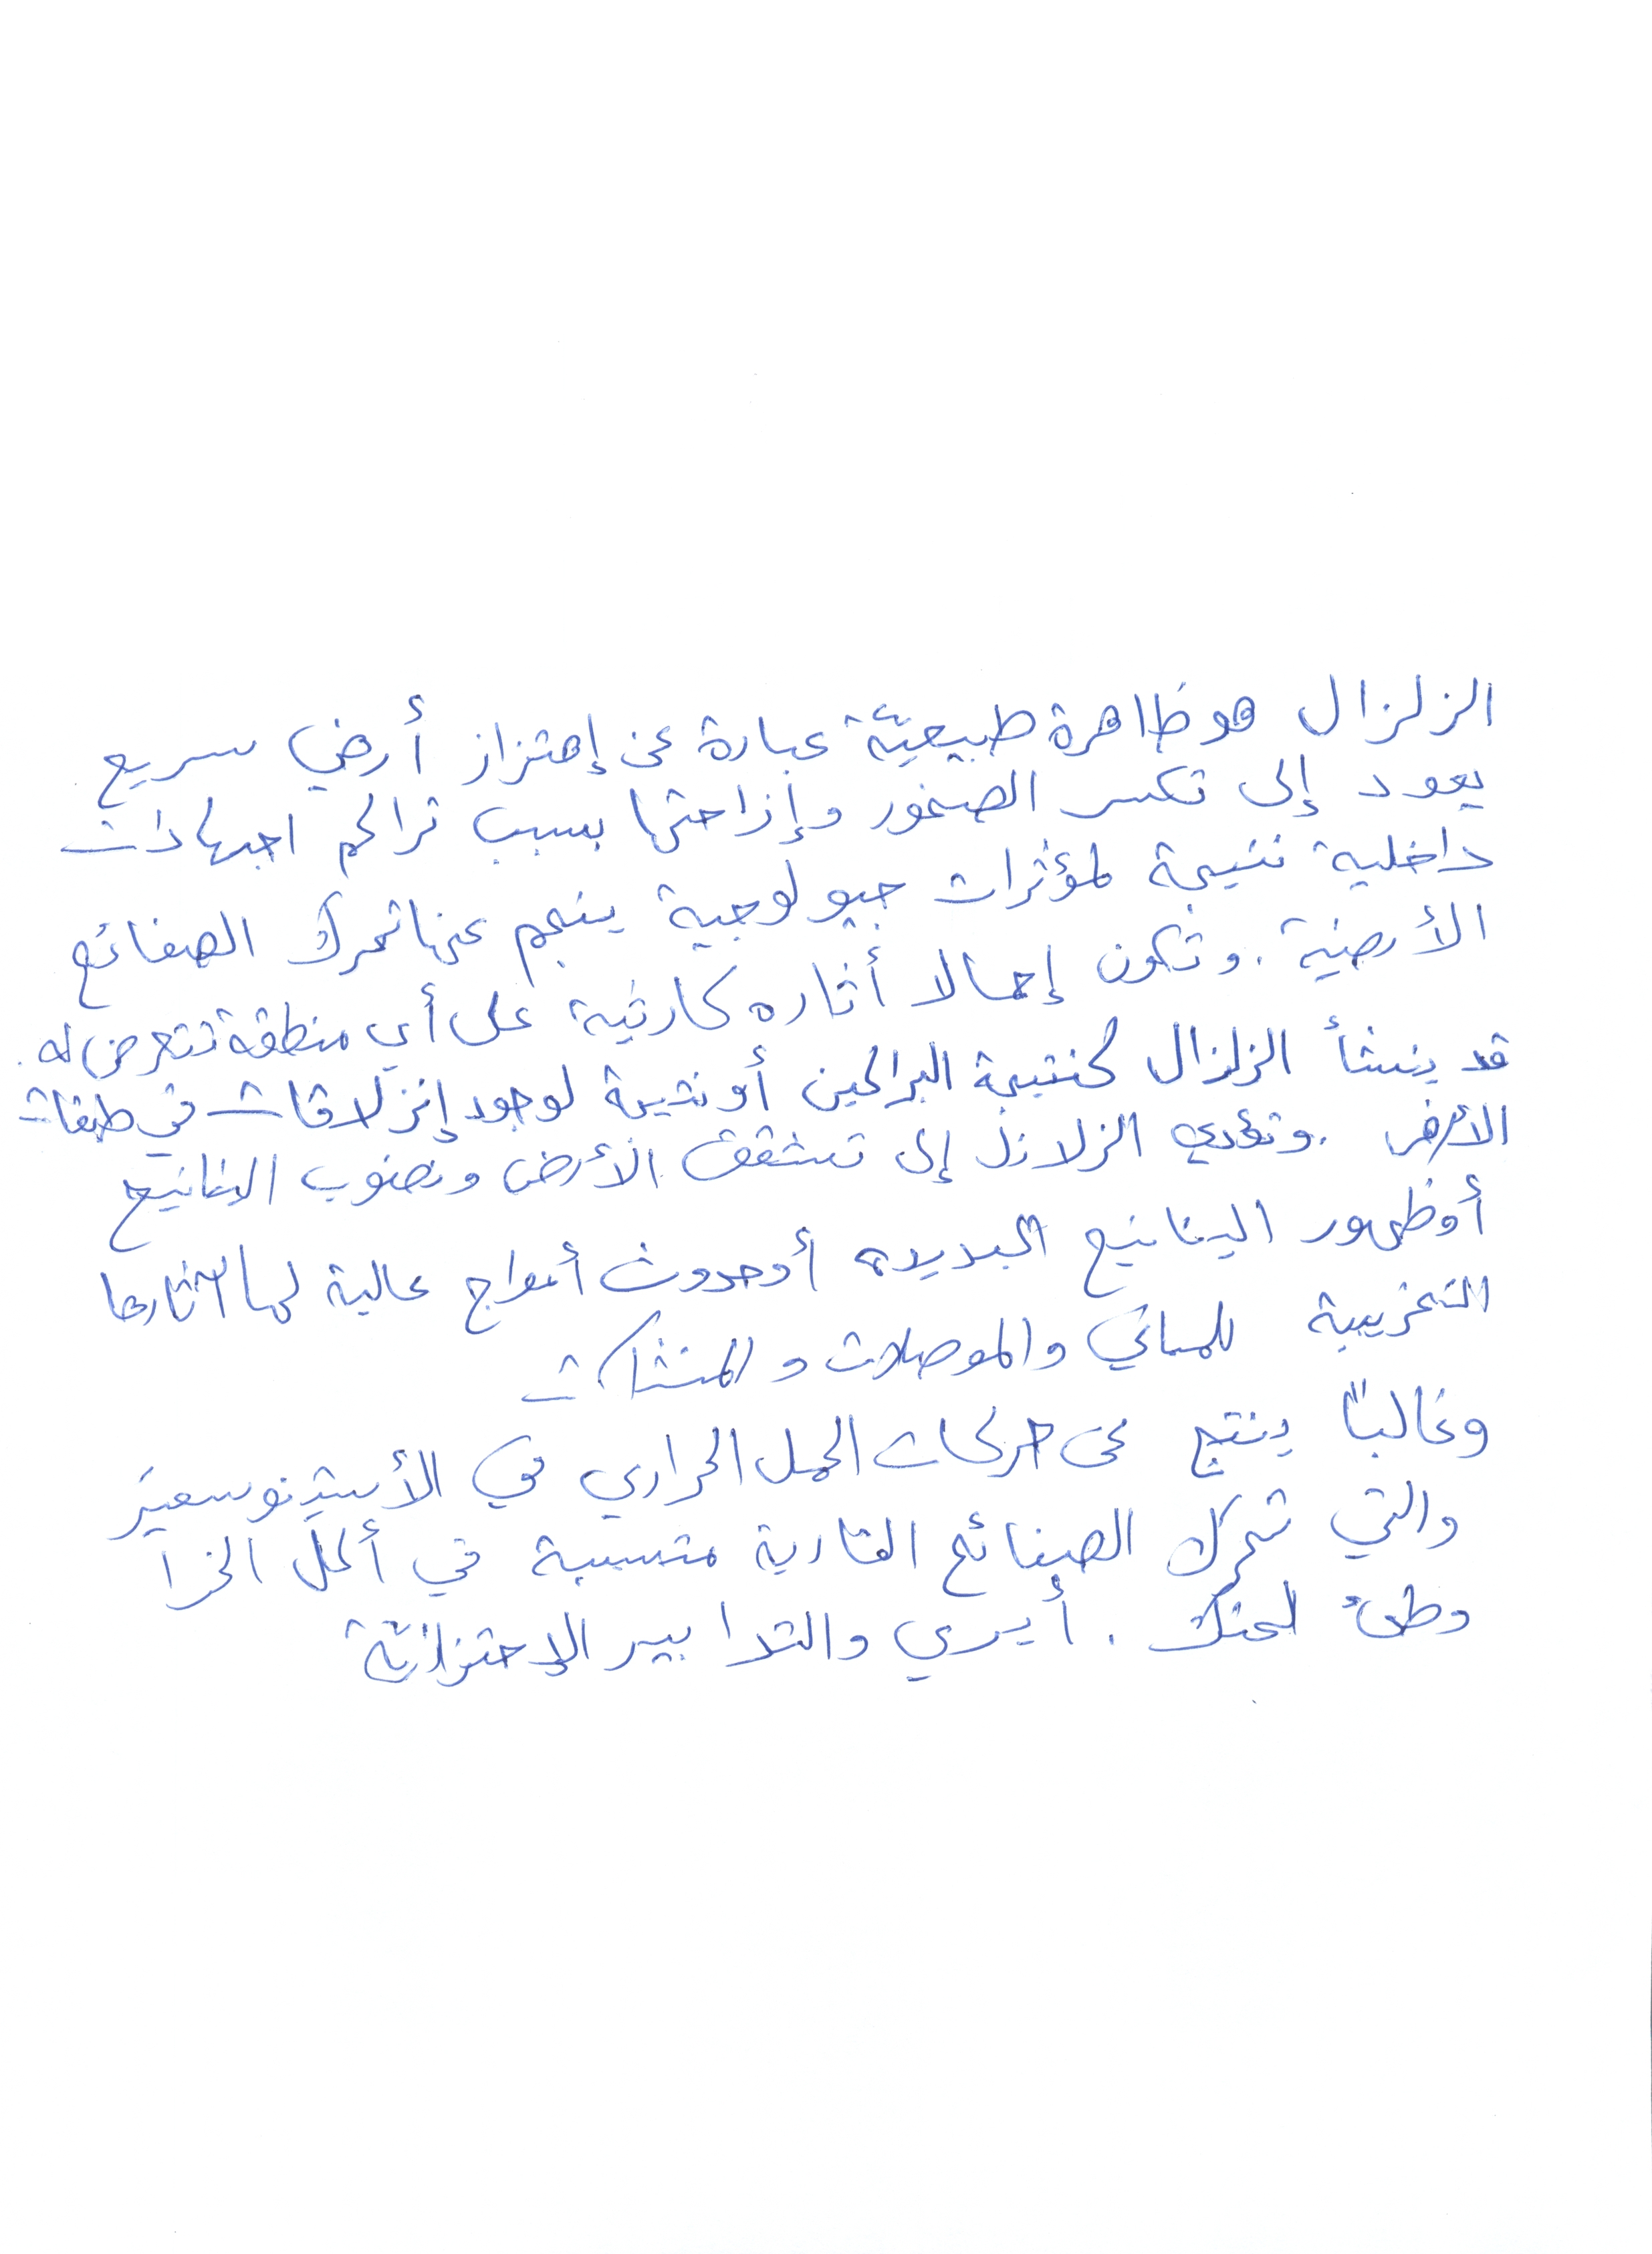 الزلزال هو ظاهرة طبيعيّة عبارة عن إهتزاز أرضي سريع
يعود إلى تكسر الصخور وإزاحتها بسبب تراكم اجهادات
داخلية نتيجة لمؤثرات جيولوجية ينجم عنها تحرك الصفائح
الأرضية. وتكون إجمالا أثاره كارثية على أي منطقة تتعرض له.
قد ينشأ الزلزال كنتيجة البراكين أو نتيجة لوجود إنزلاقات في طبقات
الأرض. وتؤدي الزلازل إلى تشقق الأرض ونضوب الينابيع
أو ظهور الينابيع الجديدة أو حدوث أمواج عالية لها آثارها
التخريبية للمباني والموصلات والمنشآت
وغالبًا ينتج عن حركات الحمل الحراري في الأستينوسفير
والتي تحرك الصفائح القارية متسببة في أكل الخرا
وطئ لحنك. أيري والتدابير الإحتزازيّة